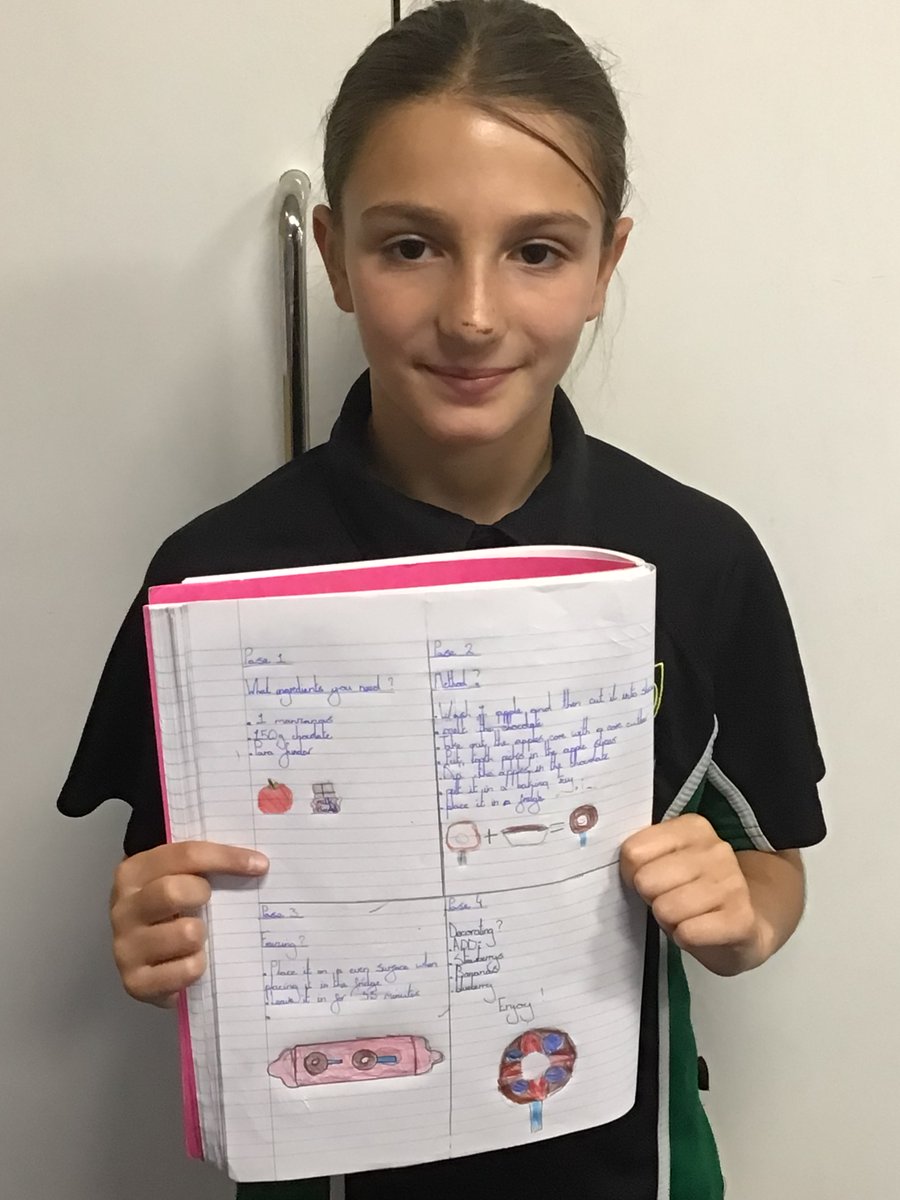 Pase 1
What ingredients you need?
1
150g chocolate
Para
Pase 2
Method?
Wash apple and then cut it into
melt the chocolate
take out the apples core with a core cutter
Put tooth picks in the apple slices
Dip the apples in the chocolate
put it in a baking tray
place it in a fridge
+ =
Pase 3
? 
Place it on a even surface when
placing it in the fridge
Leave it in for minutes
Pase 4
Decorating?
ADD:
Strawberrys
Bananas
blueberry
Enjoy!